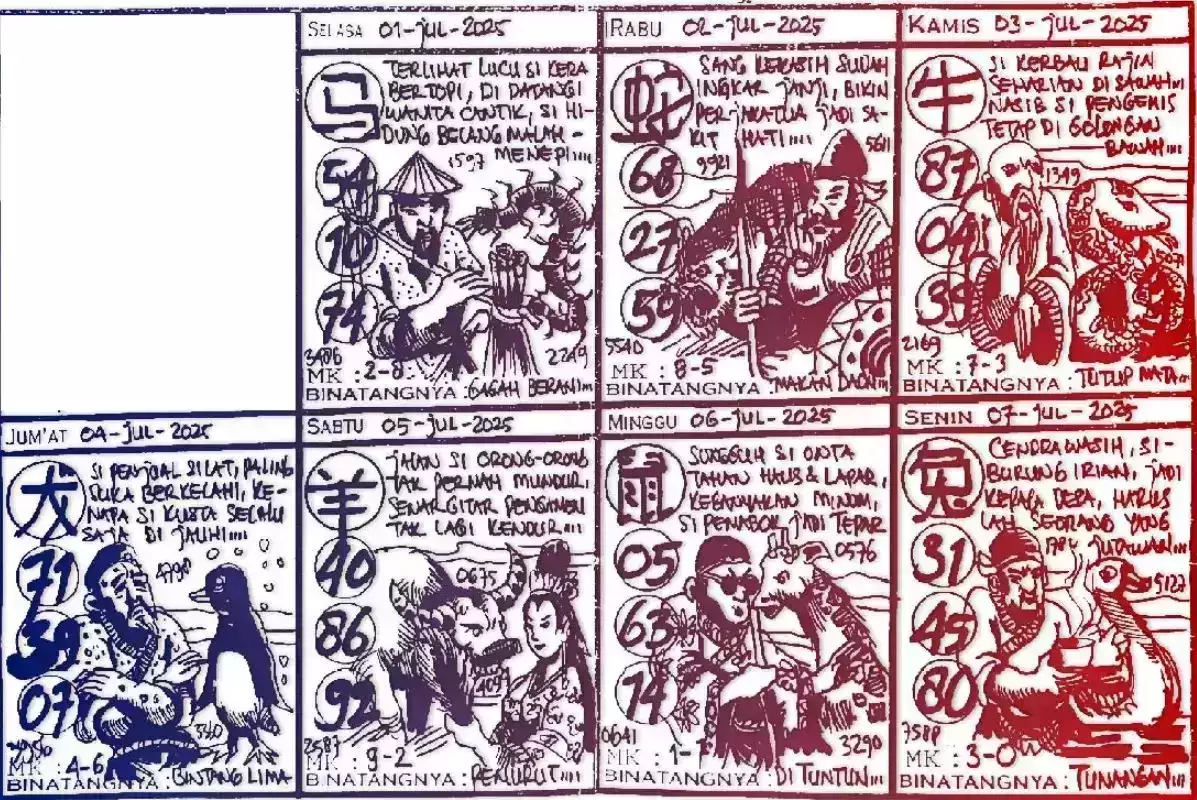 SELASA 01-JUL-2025
马
TERLIHAT LUCU SI KERA
BERTOPI, DI DATANGI
WANITA CANTIK, SI HI-
DUNG BELANG MALAH -
MENEPI....
1597
54
10
74
3486
2249
MK : 2-8
BINATANGNYA : GAGAH BERANI...
RABU 02-JUL-2025
蛇
SANG KEKASIH SUDAH
INGKAR JANJI, BIKIN
PERJAKATUA JADI SA-
KIT HATI....
9921
5611
68
27
59
5540
MK : 8-5
BINATANGNYA : MAKAN DAON...
KAMIS 03-JUL-2025
牛
SI KERBAU RAJIN
SEHARIAN DI SAWAH...
NASIB SI PENGEMIS
TETAP DI GOLONGAN
BAWAH....
1349
87
04
39
2169
MK : 7-3
BINATANGNYA : TUTUP MATA...
JUM'AT 04-JUL-2025
SI PENJUAL SILAT, PALING
SUKA BERKELAHI, KE-
NAPA SI KUSTA SELALU
SAJA DI JAUHI....
4790
71
39
07
MK : 4-6
BINATANGNYA : BINTANG LIMA
SABTU 05-JUL-2025
羊
JALAN SI ORONG-ORONG
TAK PERNAH MUNDUR,
SENAR GITAR PENGAMEN
TAK LAGI KENDUR....
0675
40
86
92
4099
2587
MK : 9-2
BINATANGNYA : PENURUT....
MINGGU 06-JUL-2025
鼠
SUNGGUH SI ONTA
TAHAN HAUS & LAPAR,
KEBANYAKAN MINUM,
SI PENABOK JADI TEPAR
0576
05
63
14
0641
3290
MK : 1-7
BINATANGNYA : DI TUNTUN...
SENIN 07-JUL-2025
兔
CENDRAWASIH, SI-
BURUNG IRIAN, JADI
KEPALA DESA, HARUS
LAH SEORANG YANG
JUTAWAN...
9127
31
45
80
7588
MK : 3-0
BINATANGNYA : TUNANGAN...